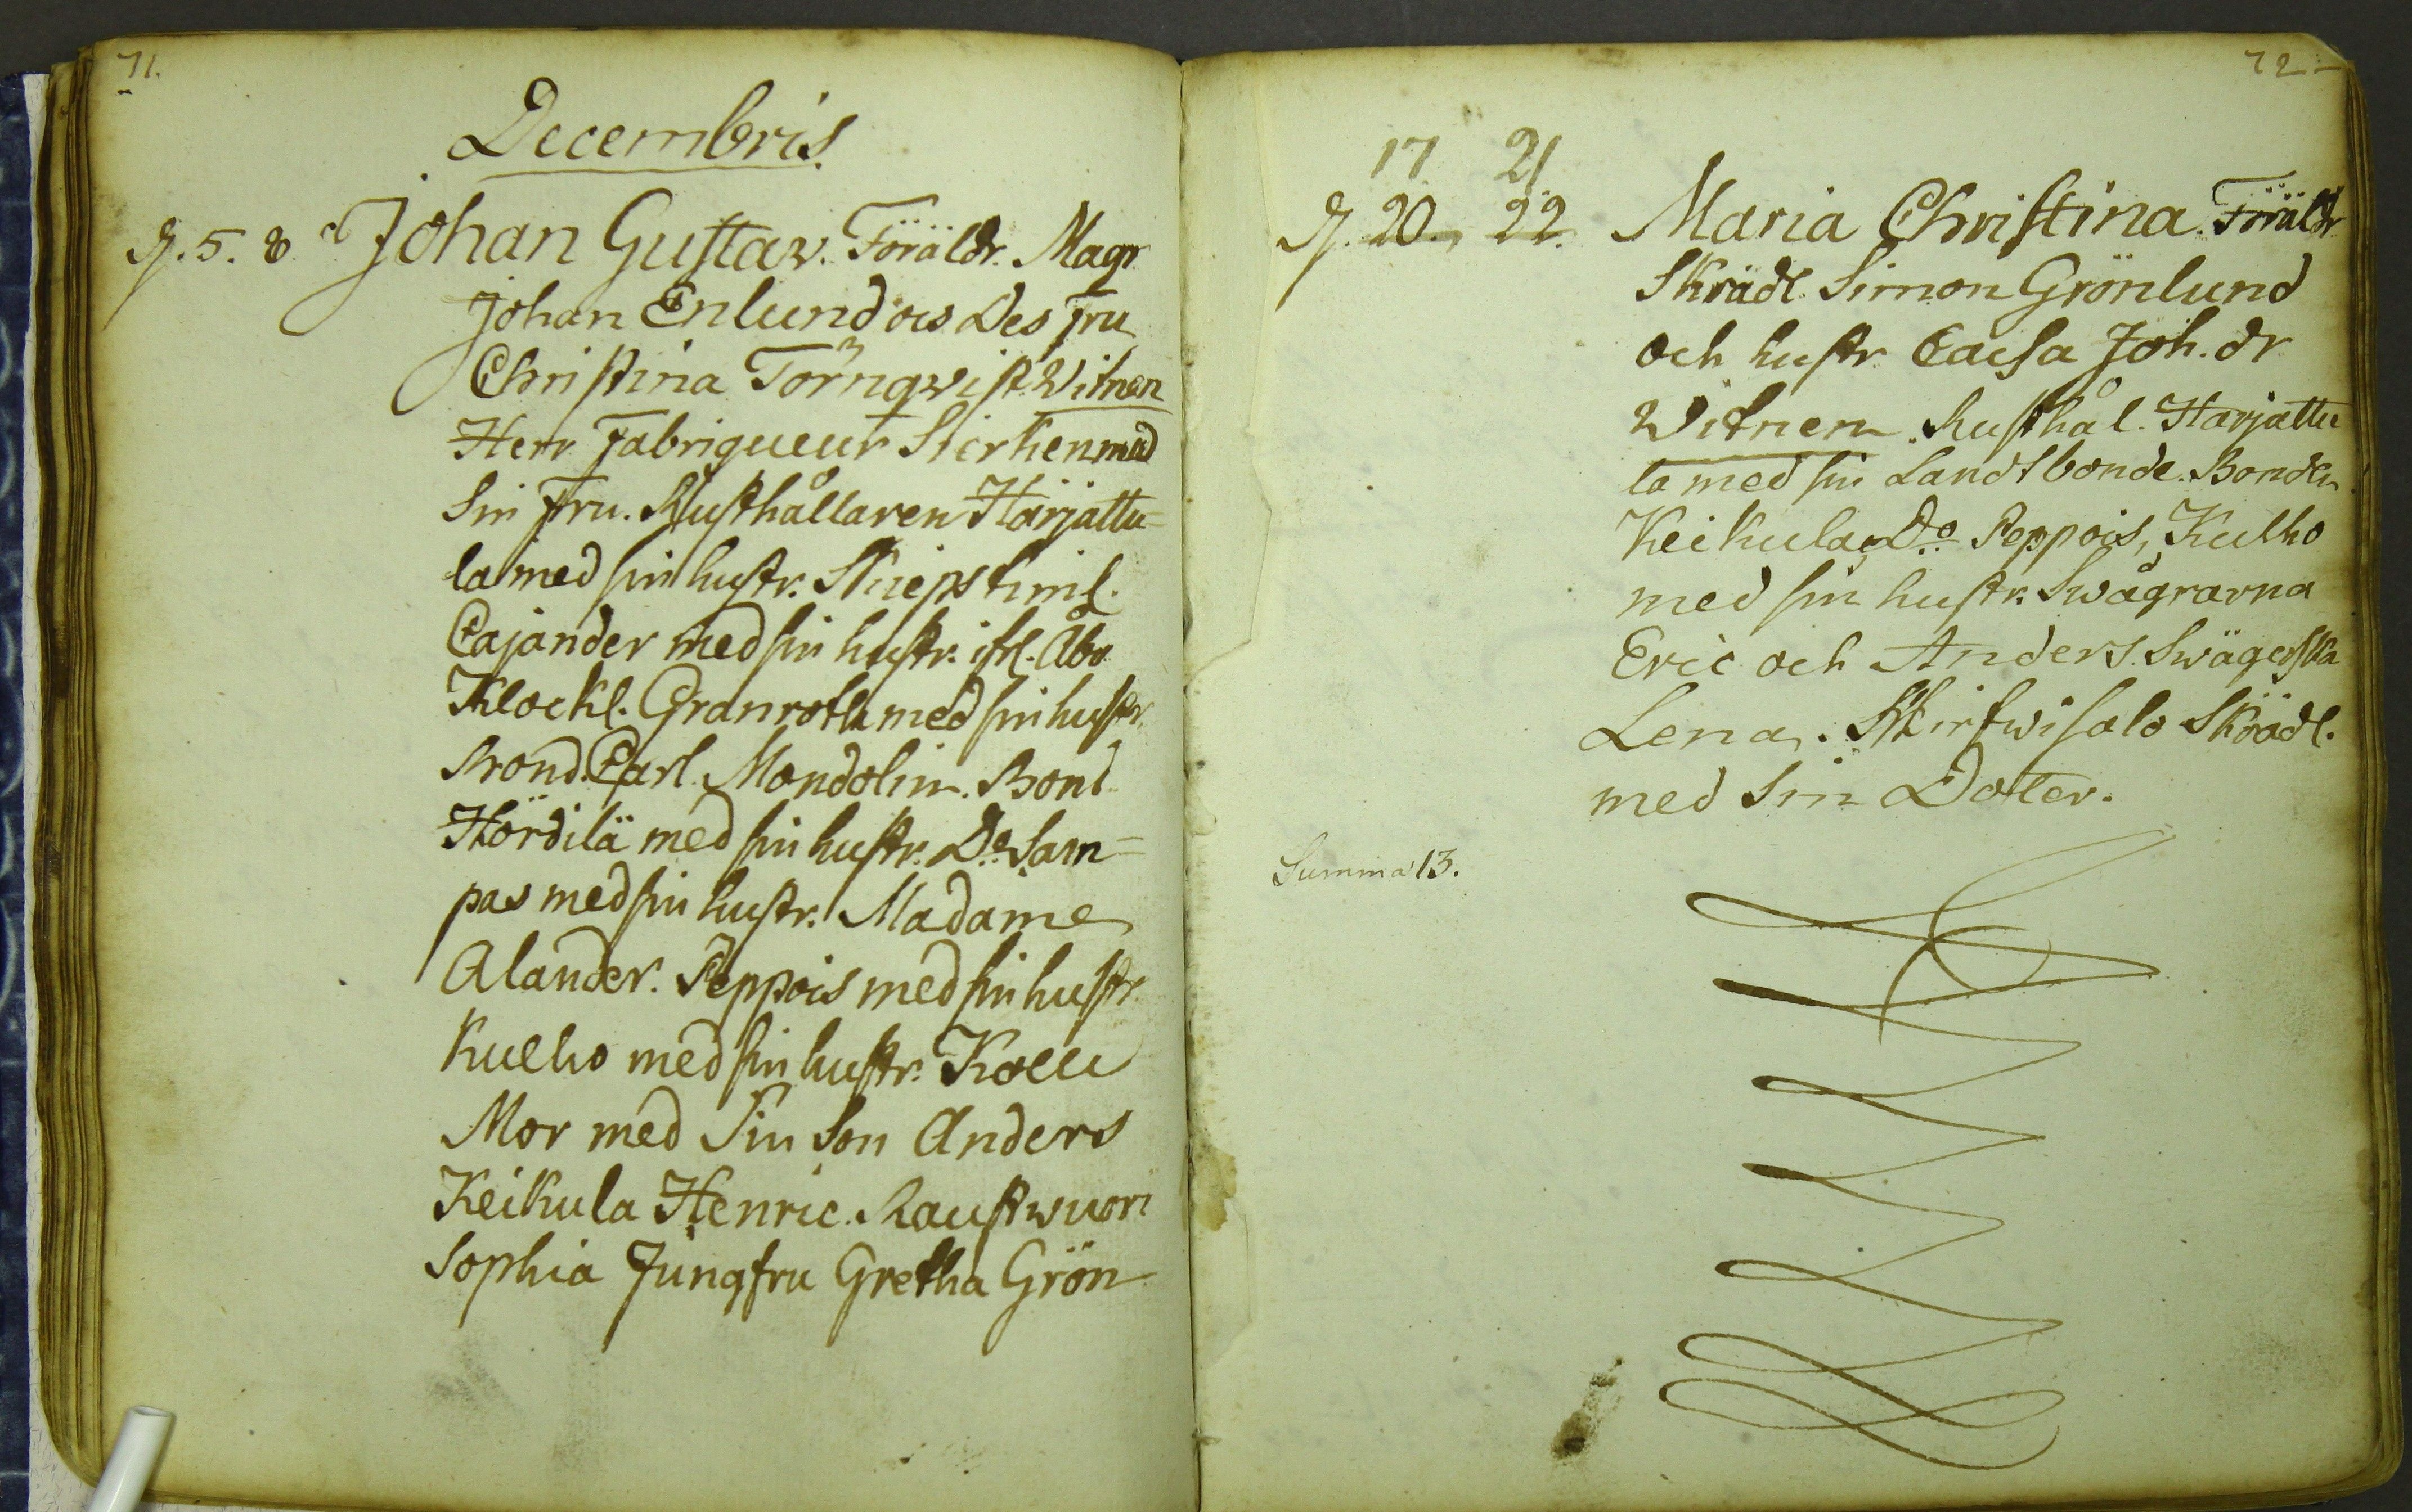 71.
Decembris.
D. 5. 8 Johan Gustav. Föräldr. Magr
Johan Enlund ocs Des Fru
Christina Törnqwist. Witnen
Herr Fabriqueur Sierken med
Sin Fru. Rusthållaren Härjattu-
la med sin hustr.
Cajander med sin hustr. ifrl. Åbo
Klockl. Granroth med sin hustr.
Brond. Carl Mondolin. Bond
Hördilä med sin hustr. Do Sam-
pas med sin hustr. Madame
Alander. Peppois med sin hustr.
Kulho med sin hustr. Kolli
Mor med Sin Son Anders
Keikula Henric. Raustwuori
Sophia Jungfru Gretha Grön
72-
17 21
D. 20. 22. Maria Christina. Föräldr
Skrädl. Simon Grönlund
och hustr Caisa Joh. dr
Witnen. Rusthål. Harjattu
la med sin Landtbonde. Bonden
Keikula, Do Peppois, Kulho
med sin hustr. Swågrarna
Eric och Anders. Swägerska
Lena. Hirfwisalo Skrädl.
med Sin Dotter.
Summa 13.